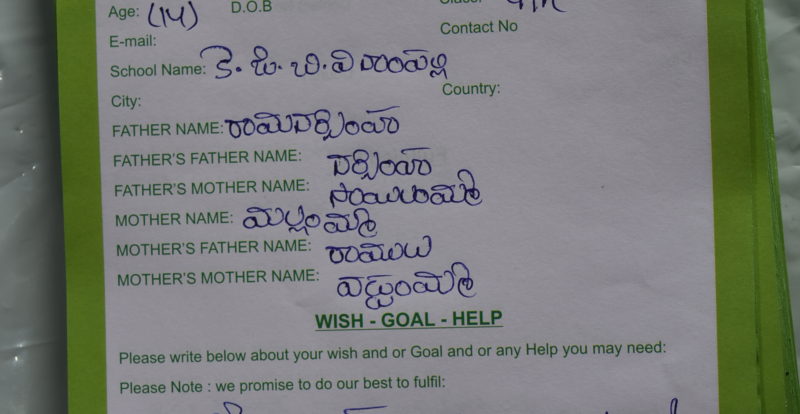 Age: (14) D.O.B
Contact No
E-mail:
School Name: కె. జి. బి. వి దాంపల్లి
City: Country:
FATHER NAME: రామనర్సింహ
FATHER'S FATHER NAME: నర్సింహ
FATHER'S MOTHER NAME: సాయిలమ్మ
MOTHER NAME: మల్లమ్మ
MOTHER'S FATHER NAME: రాములు
MOTHER'S MOTHER NAME:
WISH - GOAL - HELP
Please write below about your wish and or Goal and or any Help you may need:
Please Note : we promise to do our best to fulfil: